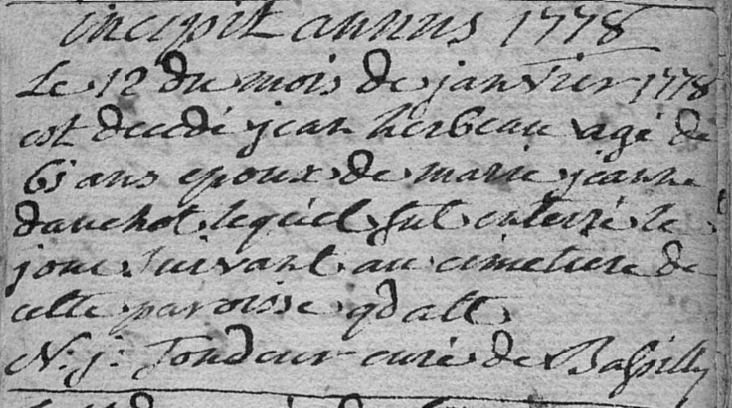 incipit annus 1778
Le 12 du mois de janvier 1778
est decedé jean herbeau agé de
65 ans epoux de marie jeanne
dauchot lequel fut enterré le
jour suivant au cimetiere de
cette paroisse qd att
N: j: Tondeur curé de Bassilly